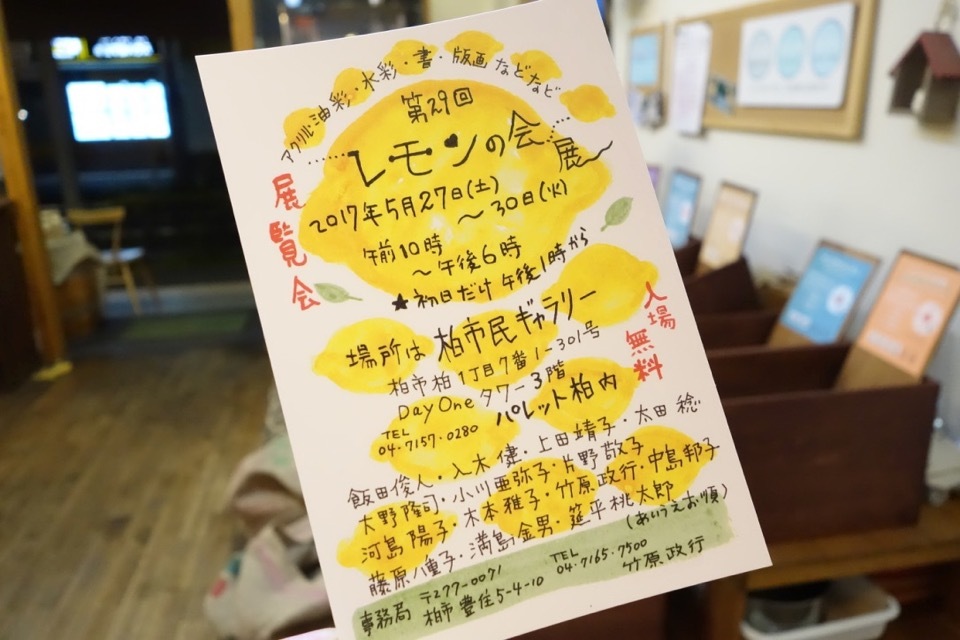 アクリル・油彩・水彩・書・版画などなど
第29回
レモンの会展
展覧会
2017年5月27日(土)
～30日(火)
午前10時
～午後6時
★初日だけ午後1時から
入場無料
場所は柏市民ギャラリー
柏市柏1丁目7番1-301号
Day Oneタワー3階
パレット柏内
TEL
04・7157・0280
飯田俊人・入木健・上田靖子・太田稔
大野隆司・小川亜弥子・片野敬子
河島陽子・木本雅子・竹原政行・中島邦子
藤原八重子・満島金男・筵平桃太郎
(あいうえお順)
事務局 〒277-0071
柏市豊住5-4-10
TEL
04・7165・7500
竹原政行